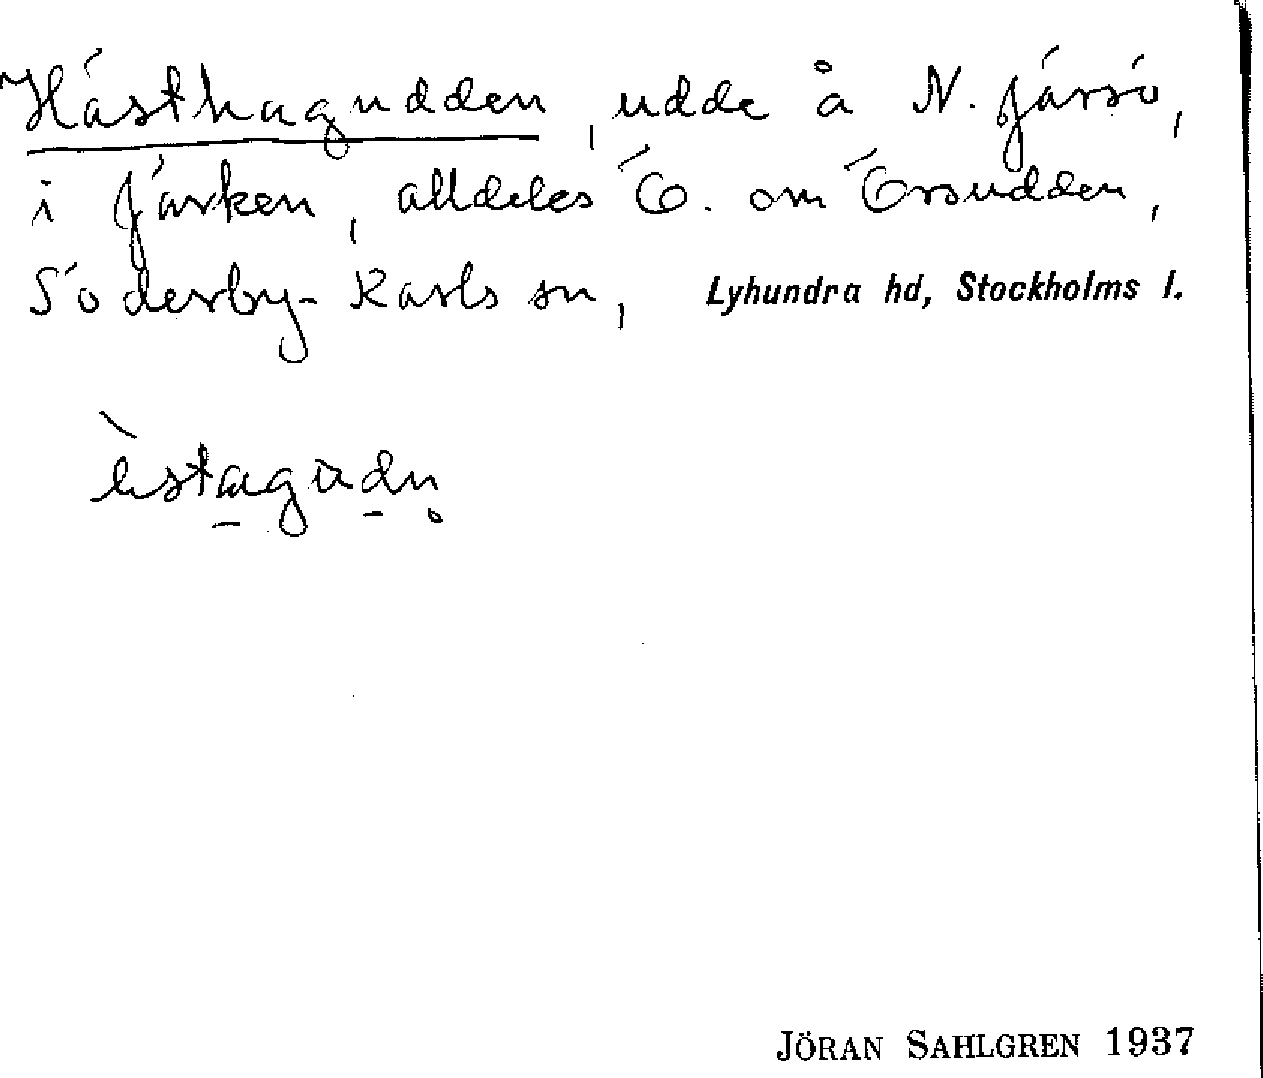 Hästhagudden, udde å N. Järsö,
i Järken, alldeles Ö. om Örsudden,
Söderby-Karls sn, Lyhundra hd, Stockholms l.
JÖRAN SAHLGREN 1937